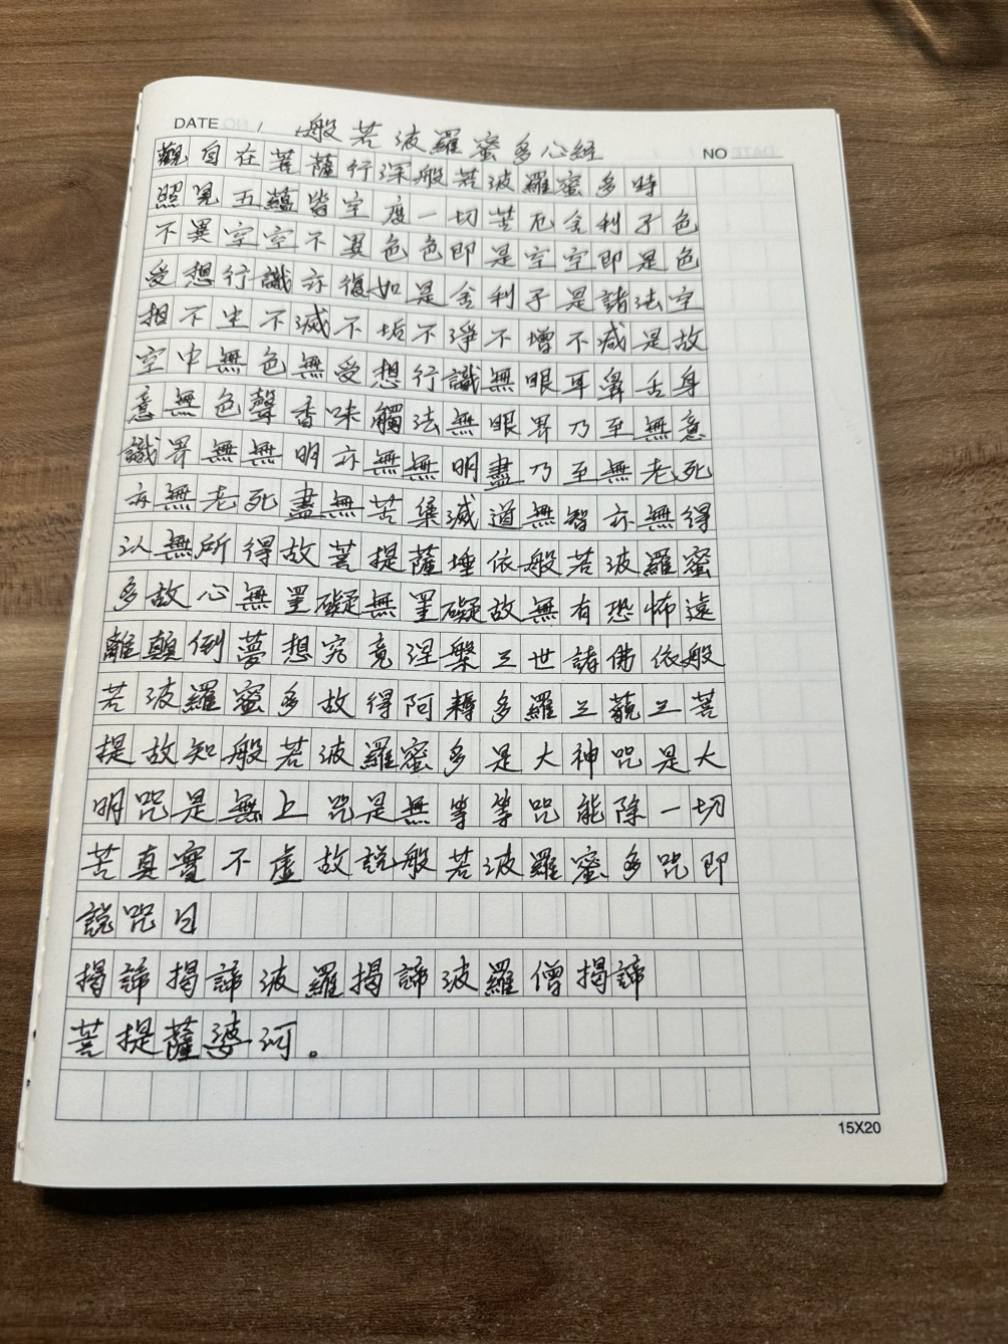 DATE / 般若波羅蜜多心經 NO
觀自在菩薩行深般若波羅蜜多時
照見五蘊皆空度一切苦厄舍利子色
不異空空不異色色即是空空即是色
受想行識亦復如是舍利子是諸法空
相不生不滅不垢不淨不增不减是故
空中無色無受想行識無眼耳鼻舌身
意無色聲香味觸法無眼界乃至無意
識界無無明亦無無明盡乃至無老死
亦無老死盡無苦集滅道無智亦無得
以無所得故菩提薩埵依般若波羅蜜
多故心無罣礙無罣礙故無有恐怖遠
離顛倒夢想究竟涅槃三世諸佛依般
若波羅蜜多故得阿耨多羅三藐三菩
提故知般若波羅蜜多是大神咒是大
明咒是無上咒是無等等咒能除一切
苦真實不虛故說般若波羅蜜多咒即
說咒曰
揭諦揭諦波羅揭諦波羅僧揭諦
菩提薩婆訶。
15X20